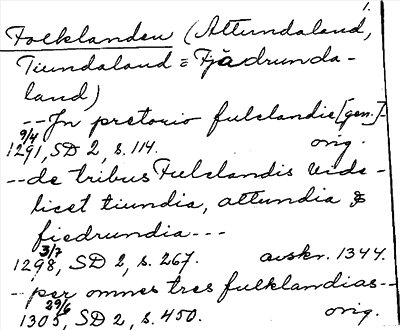 1.
Folklanden (Attundaland,
Tiundaland = Fjädrunda-
land)
-- In pretorio fulclandie [gen.]-
9/4
1291, SD 2, s. 114. orig.
-- de tribus Fulclandis vide-
licet tiundia, attundia &
fiedrundia ---
3/7
1298, SD 2, s. 267. avskr. 1344.
-- per omnes tres fulklandias --
29/6
1305, SD 2, s. 450. orig.